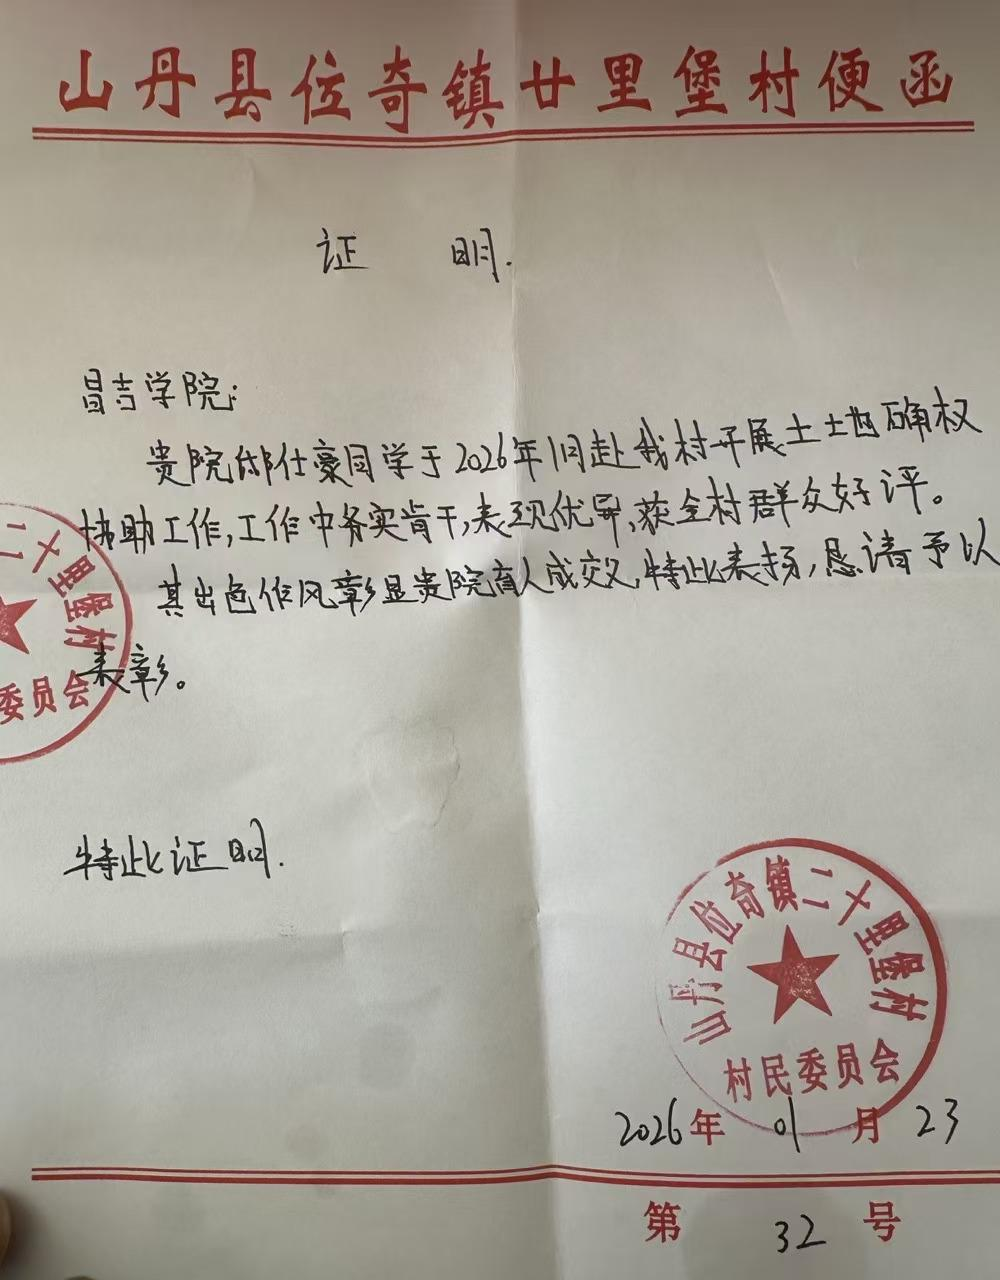 山丹县位奇镇廿里堡村便函
证 明.
昌吉学院:
贵院邰仕豪同学于2026年1月赴我村开展土地确权
协助工作,工作中务实肯干,表现优异,获全村群众好评。
其出色作风彰显贵院育人成效,特此表扬,恳请予以
表彰。
二十里堡村
委员会
特此证明.
山丹县位奇镇二十里堡村
村民委员会
2026年 01月 23
第 32 号